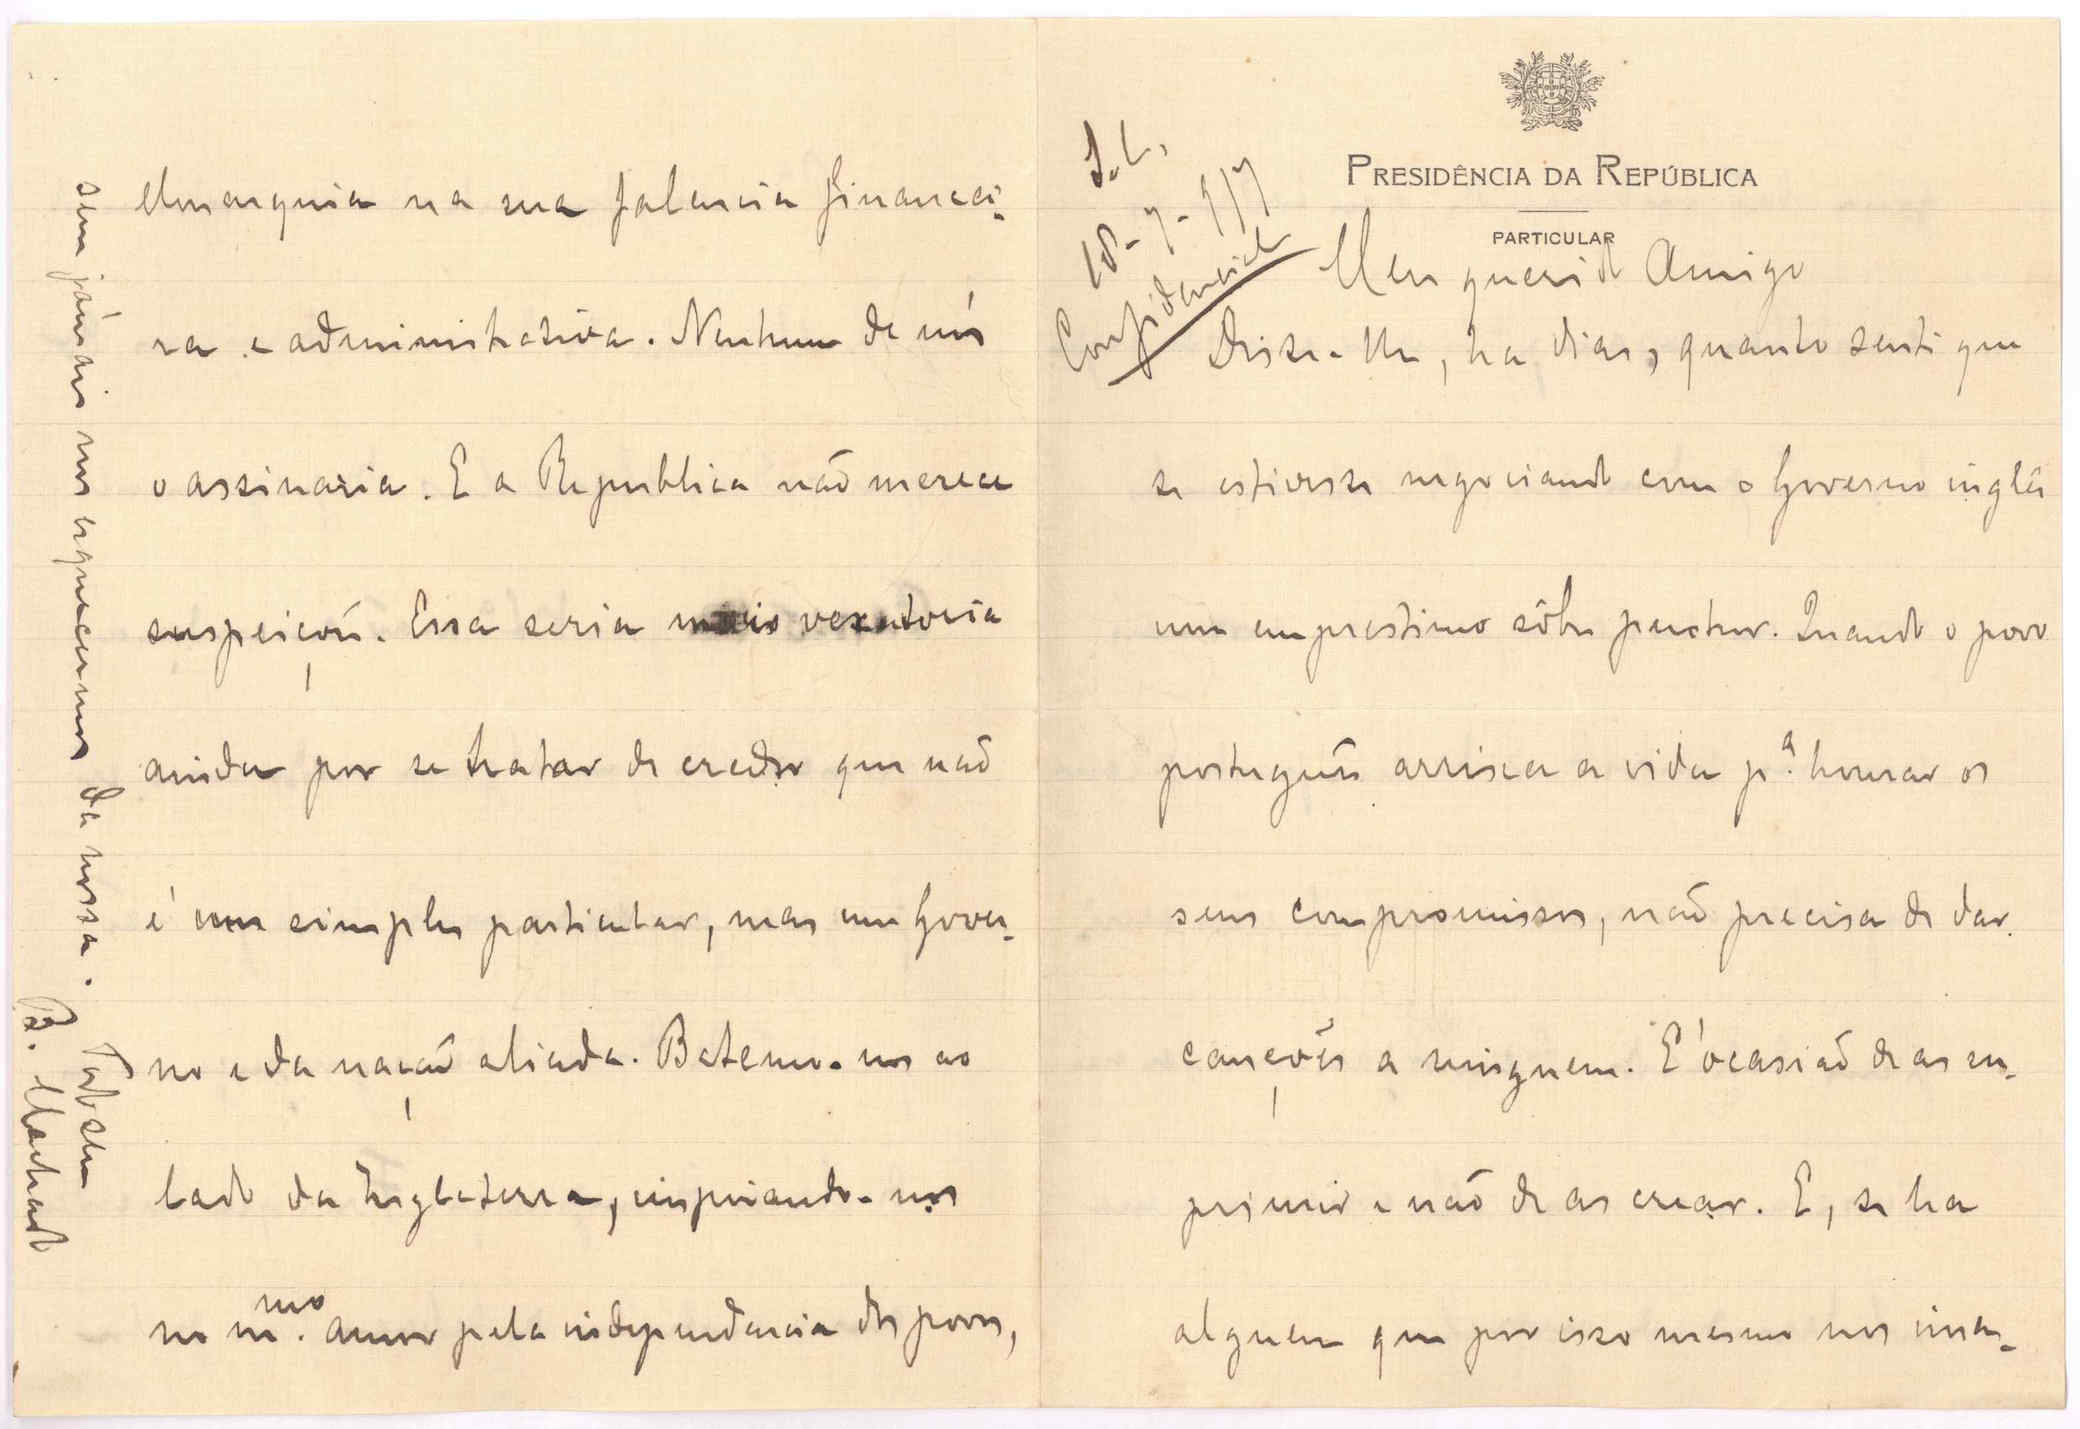 PRESIDÊNCIA DA REPÚBLICA
PARTICULAR
S. C.
18-7-917
Confidencial
Meu querido Amigo
Disse-lhe, ha dias, quanto senti que
se estivesse negociando com o Governo inglês
um emprestimo sôbre penhor. Quando o povo
português arrisca a vida p.ª honrar os
seus compromissos, não precisa de dar
cauções a ninguem. É ocasião de as su-
primir e não de as crear. E, se ha
alguem que por isso mesmo nos
Monarquia na sua falencia financei-
ra e administrativa. Nenhum de nós
o assinaria. E a Republica não merece
suspeições. Essa seria mais vexatoria
ainda por se tratar de credor que não
é um simples particular, mas um Gover-
no e da nação aliada. Batemo-nos ao
lado da Inglaterra, inspirando-nos
no m.mo amor pela independencia dos povos,
sem jámais nos esquecermos da nossa.
Todo seu
B. Machado